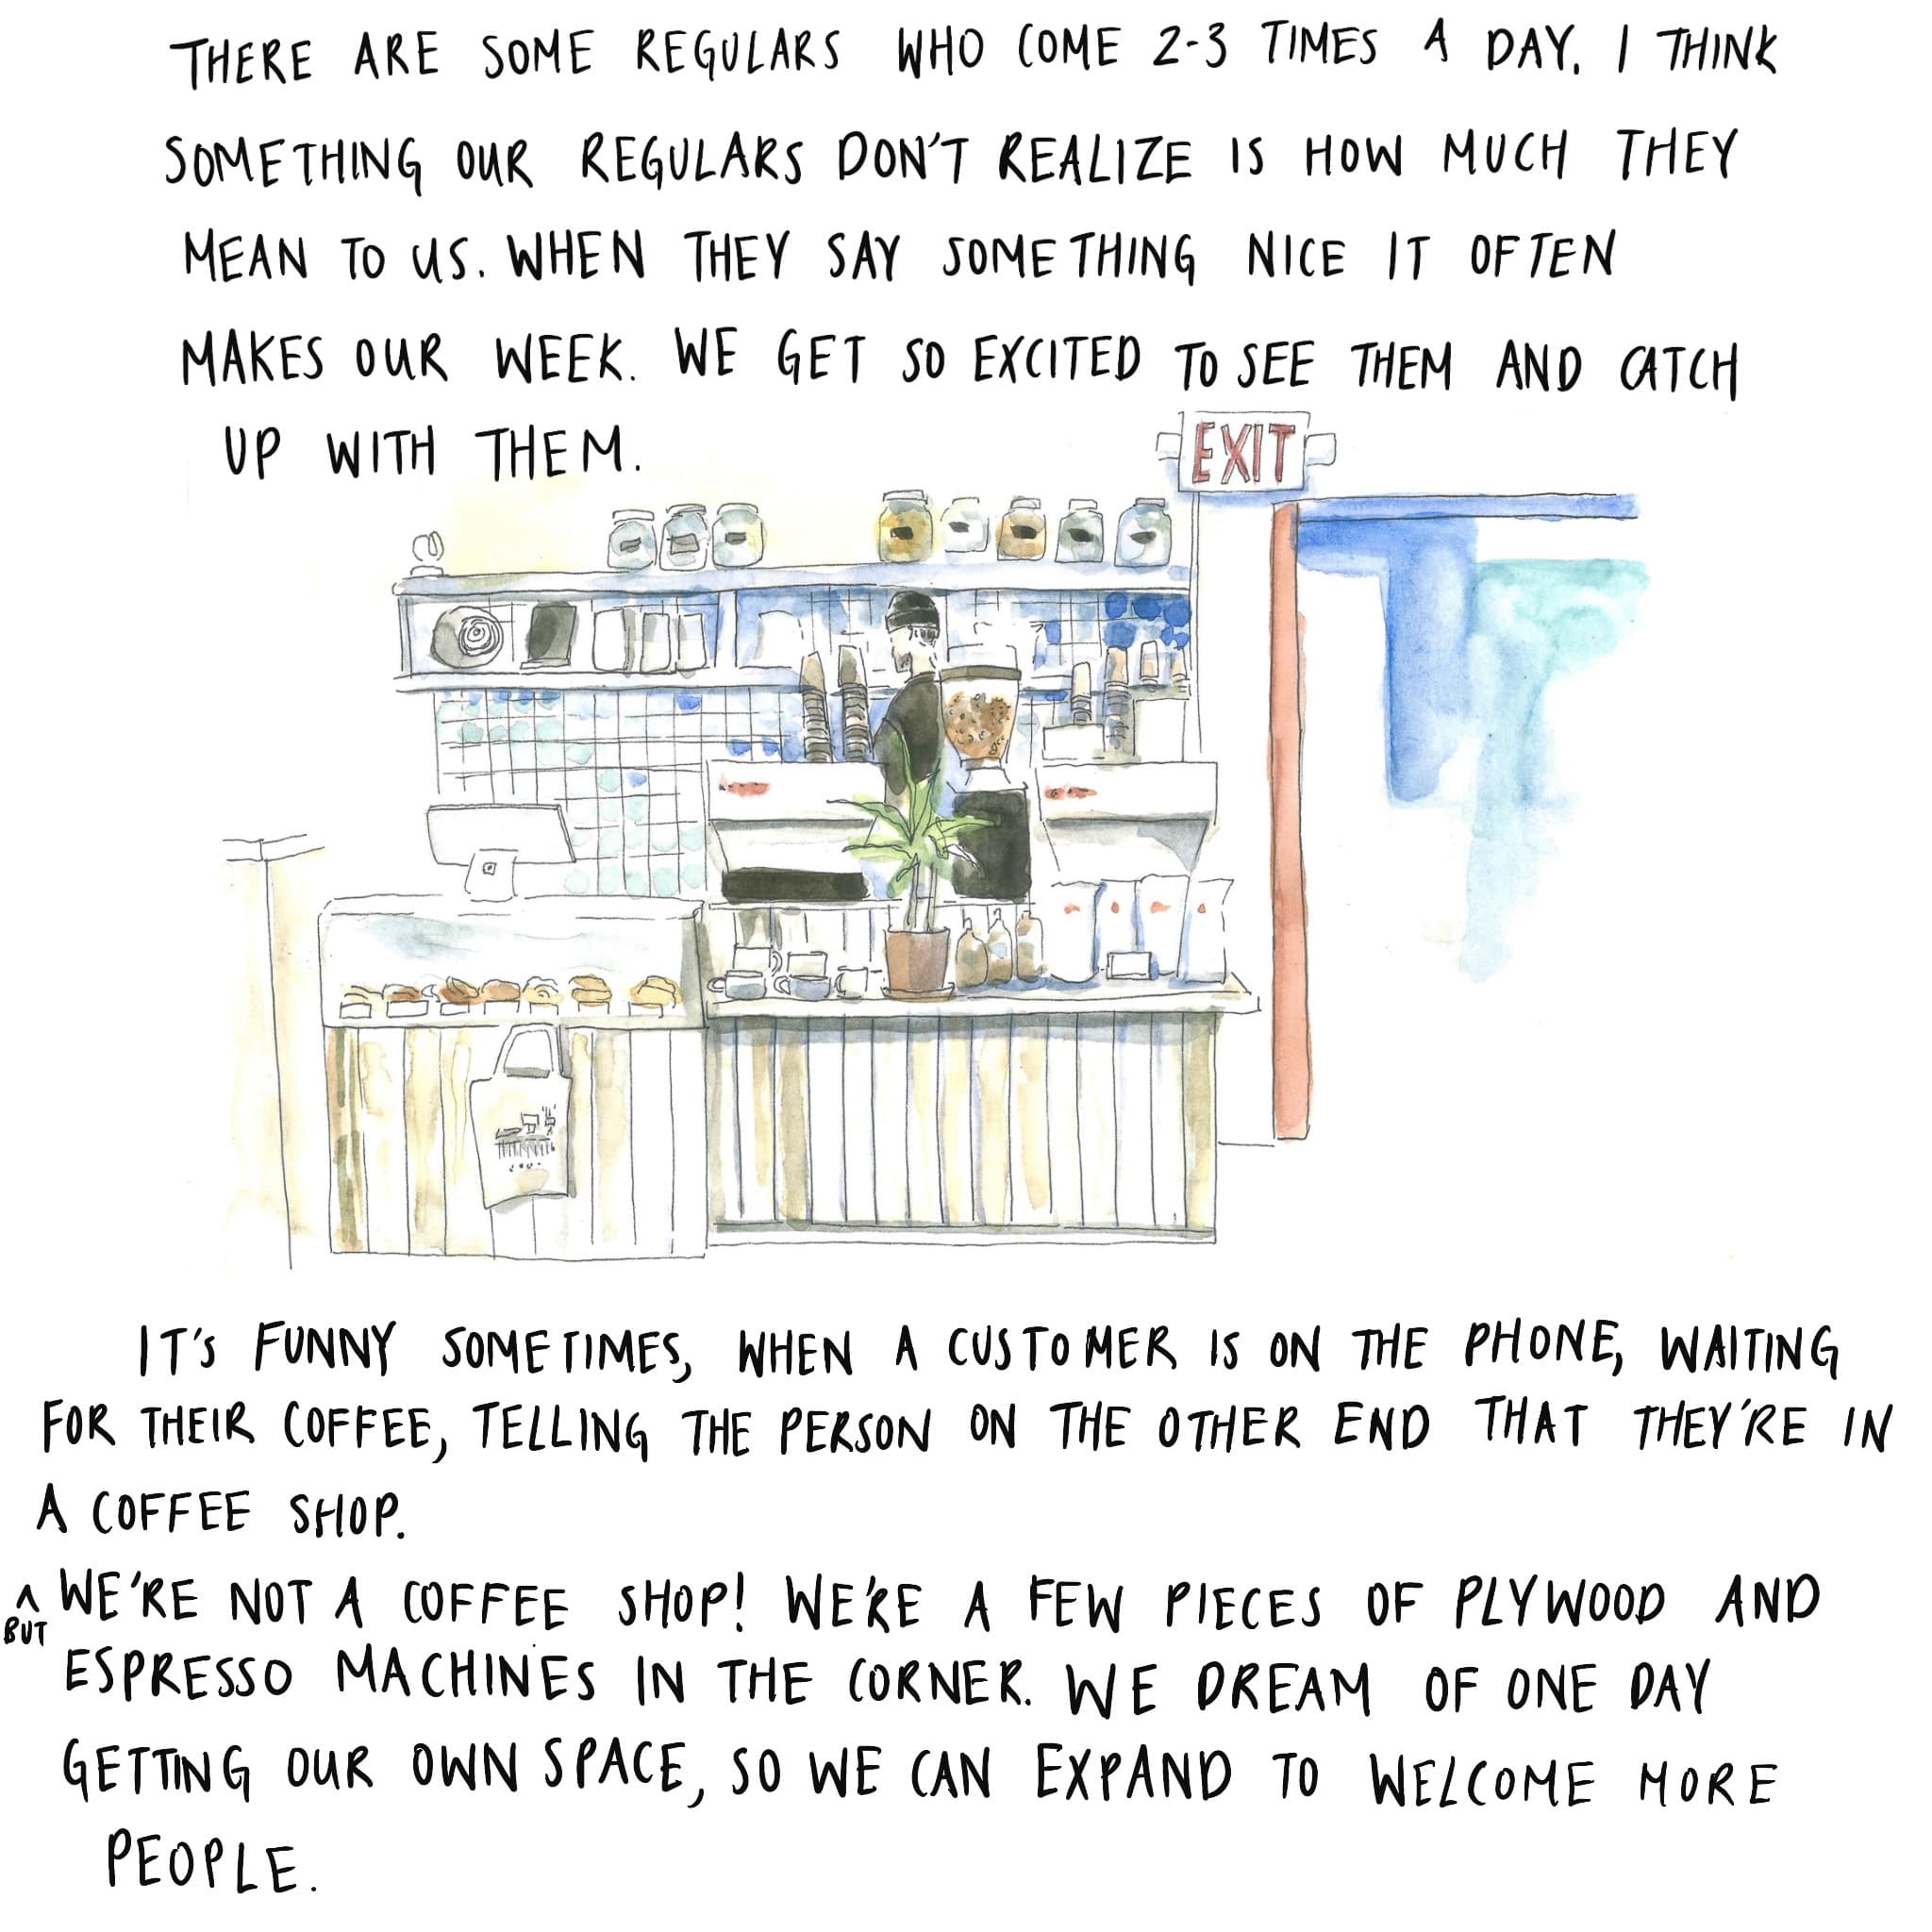 THERE ARE SOME REGULARS WHO COME 2-3 TIMES A DAY. I THINK
SOMETHING OUR REGULARS DON'T REALIZE IS HOW MUCH THEY
MEAN TO US. WHEN THEY SAY SOMETHING NICE IT OFTEN
MAKES OUR WEEK. WE GET SO EXCITED TO SEE THEM AND CATCH
UP WITH THEM.
EXIT
IT'S FUNNY SOMETIMES, WHEN A CUSTOMER IS ON THE PHONE, WAITING
FOR THEIR COFFEE, TELLING THE PERSON ON THE OTHER END THAT THEY'RE IN
A COFFEE SHOP.
^ WE'RE NOT A COFFEE SHOP! WE'RE A FEW PIECES OF PLYWOOD AND
BUT
ESPRESSO MACHINES IN THE CORNER. WE DREAM OF ONE DAY
GETTING OUR OWN SPACE, SO WE CAN EXPAND TO WELCOME MORE
PEOPLE.